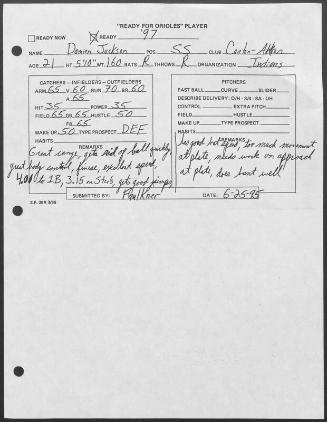 "READY FOR ORIOLES" PLAYER
READY NOW READY '97
NAME Damian Jackson POS SS CLUB Canton-Akron
AGE 21 HT 5'10" WT 160 BATS R THROWS R ORGANIZATION Indians
CATCHERS - INFIELDERS - OUTFIELDERS
ARM 65 V.60 RUN 70 BR.60
A.65
HIT 35 POWER 35
FIELD 65 GR.65 HUSTLE 50
FR.65
MAKE UP 50 TYPE PROSPECT DEF
HABITS
REMARKS
Great range, gets rid of ball quickly,
great body control, finesse, excellent speed,
4.00 to 1B, 3.15 on Steals, gets good jumps,
PITCHERS
FAST BALL CURVE SLIDER
DESCRIBE DELIVERY: O/H - S/S - SA - UH
CONTROL EXTRA PITCH
FIELD HUSTLE
MAKE UP TYPE PROSPECT
HABITS
REMARKS
has good bat speed, too much movement
at plate, needs work on approach
at plate, does bunt well
SUBMITTED BY: Paul Kner DATE: 6-25-95